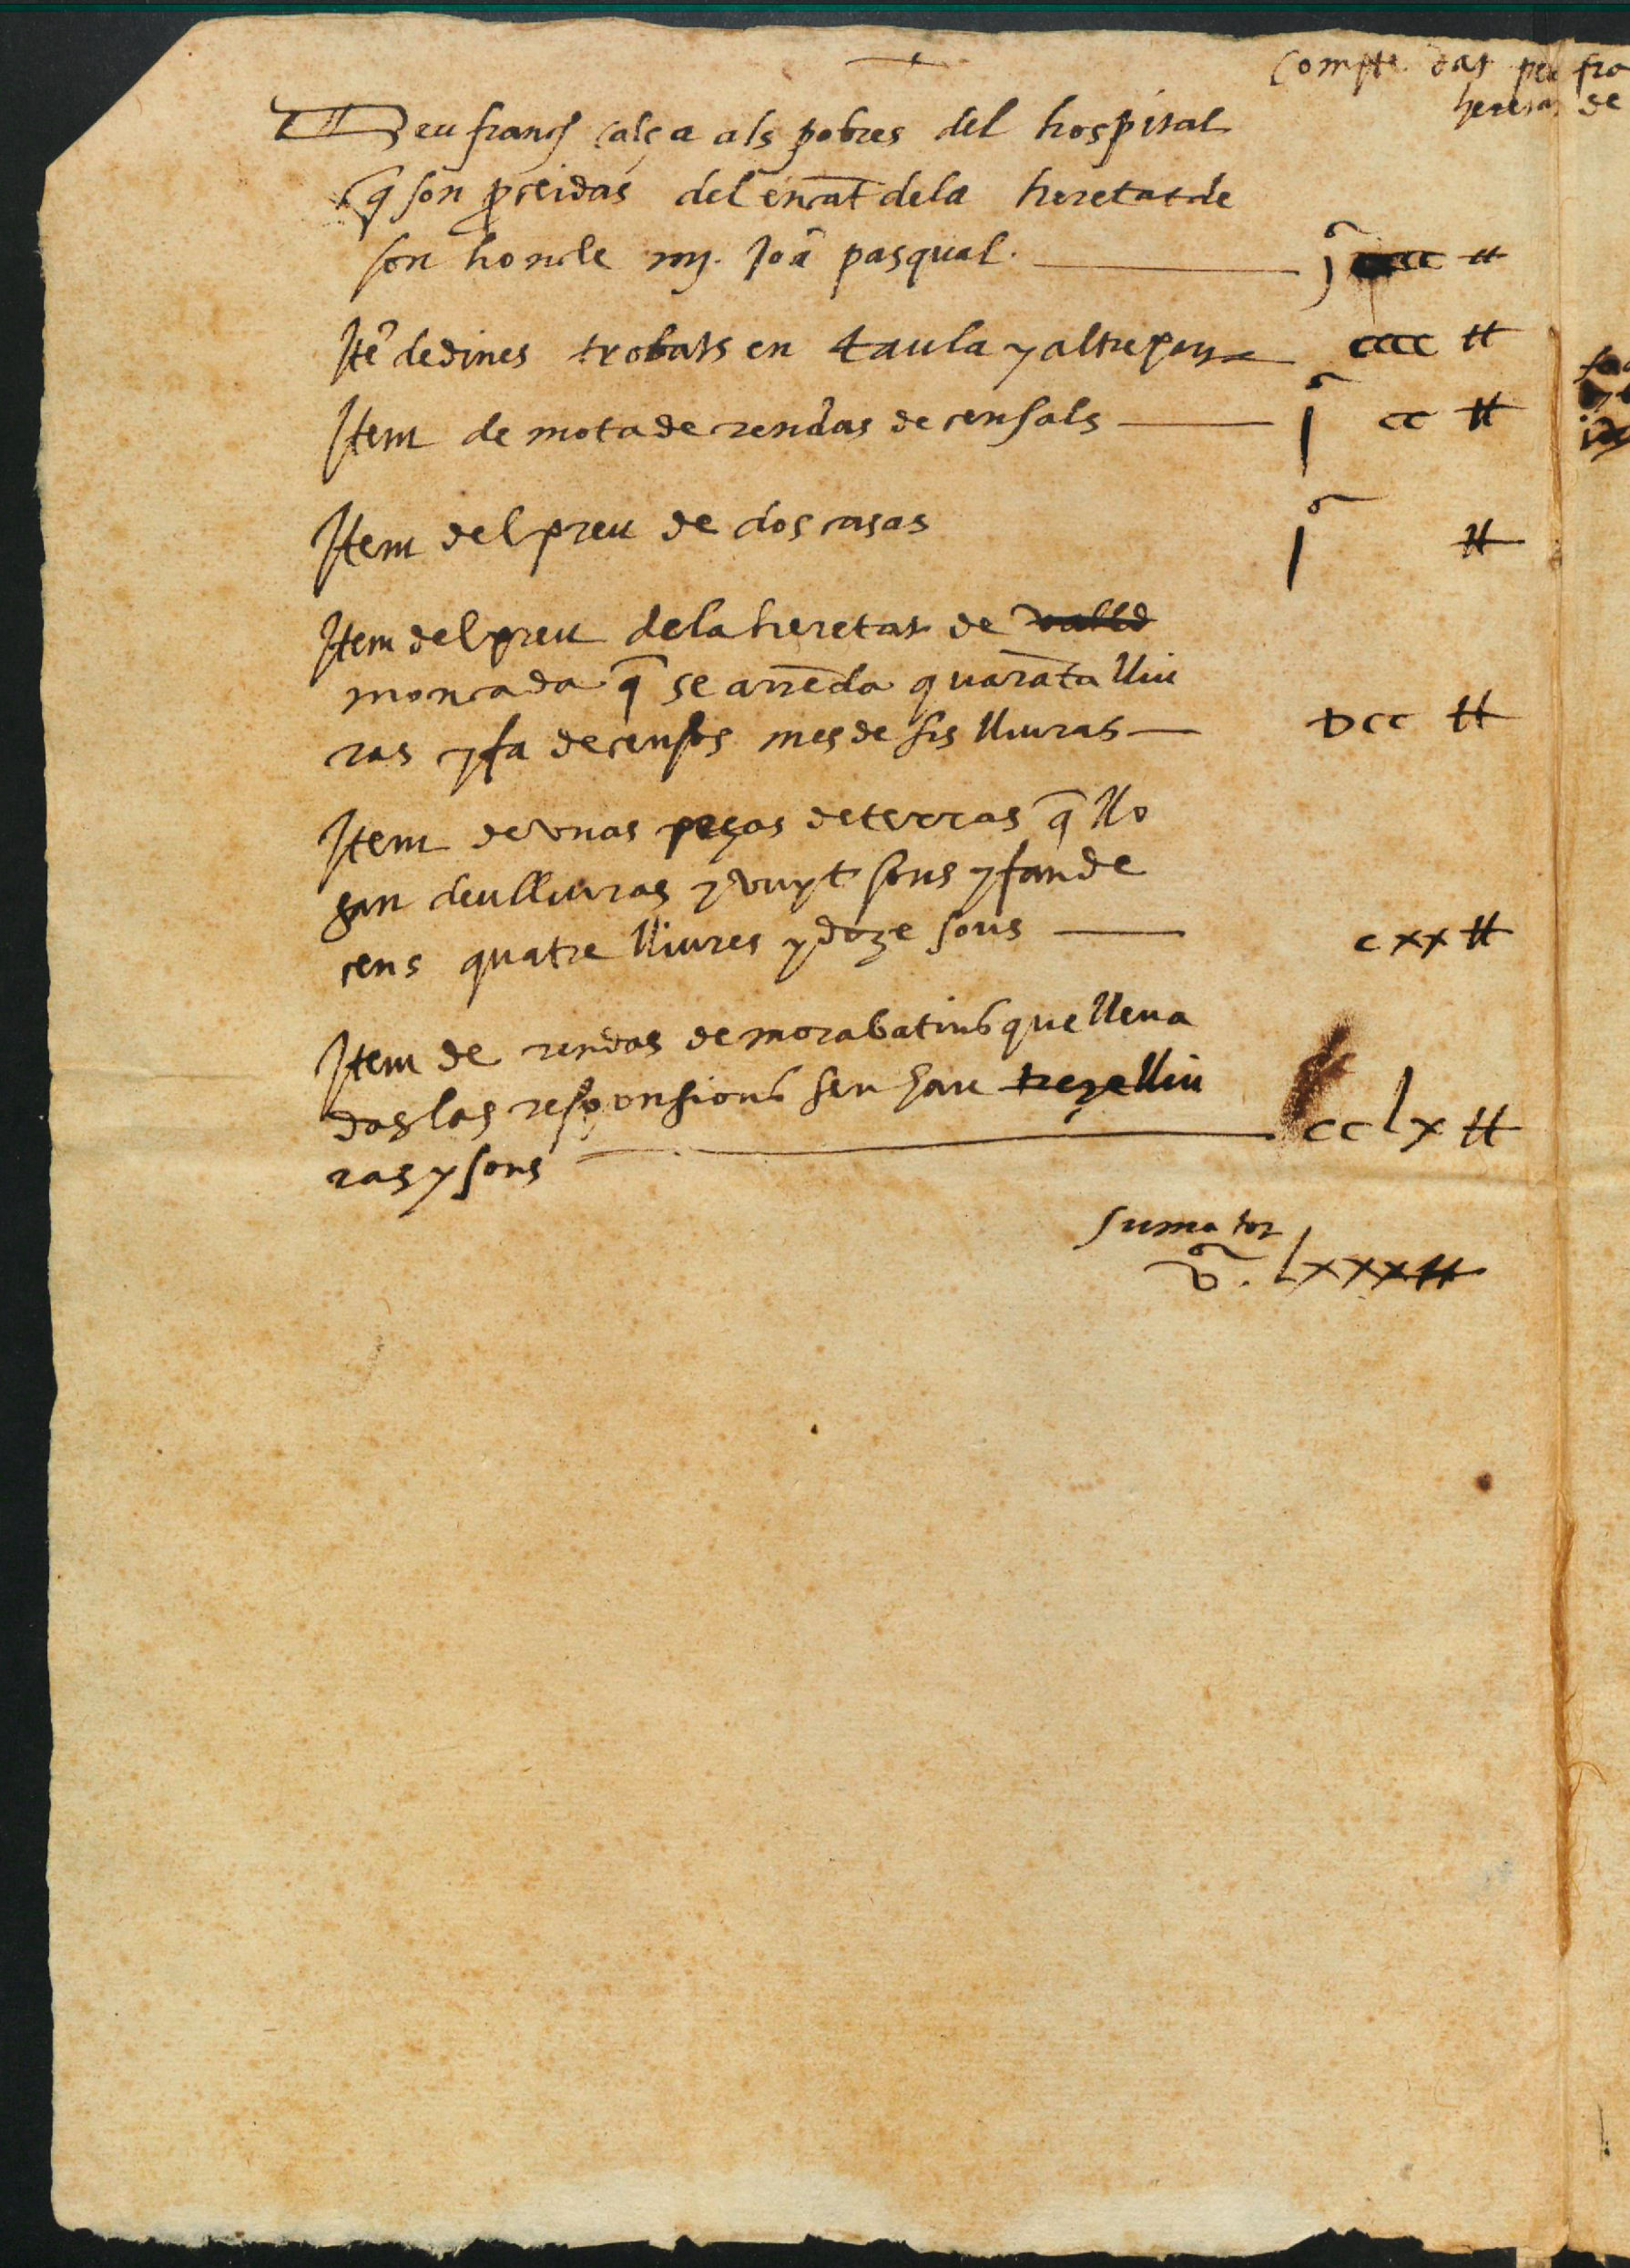 Compte dat per fra
heretat de
Deu franc calça als pobres del hospital
q̄ son proceidas del encāt dela heretat de
son honcle mº. Joā pasqual. j ccc ℔
Itē dedines trobats en taula y altre part cccc ℔
Item de mota de rendas de censals j cc ℔
Item del preu de dos casas j ℔
Item del preu dela heretat de valld
moncada q̄ se arrēda quarāta lliu
ras y fa de censos mes de sis lliuras D cc ℔
Item de unas peças de terras q̄ llo
gan deu lliuras y vuyt sous y fan de
cens quatre lliures y doze sous c xx ℔
Item de rendas de morabatins que lleua
das las responsions sen hau treze lliu
ras y sous cc lx ℔
suma tot
v̄. lxxx ℔